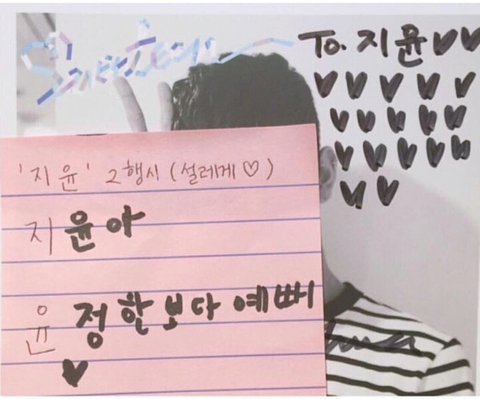 To. 지윤♡♡
♥♥♥♥♥
♥♥♥♥♥
♥♥♥♥♥
♥♥
'지윤' 2행시 (설레게♡)
지 윤아
윤 정한보다 예뻐
♥